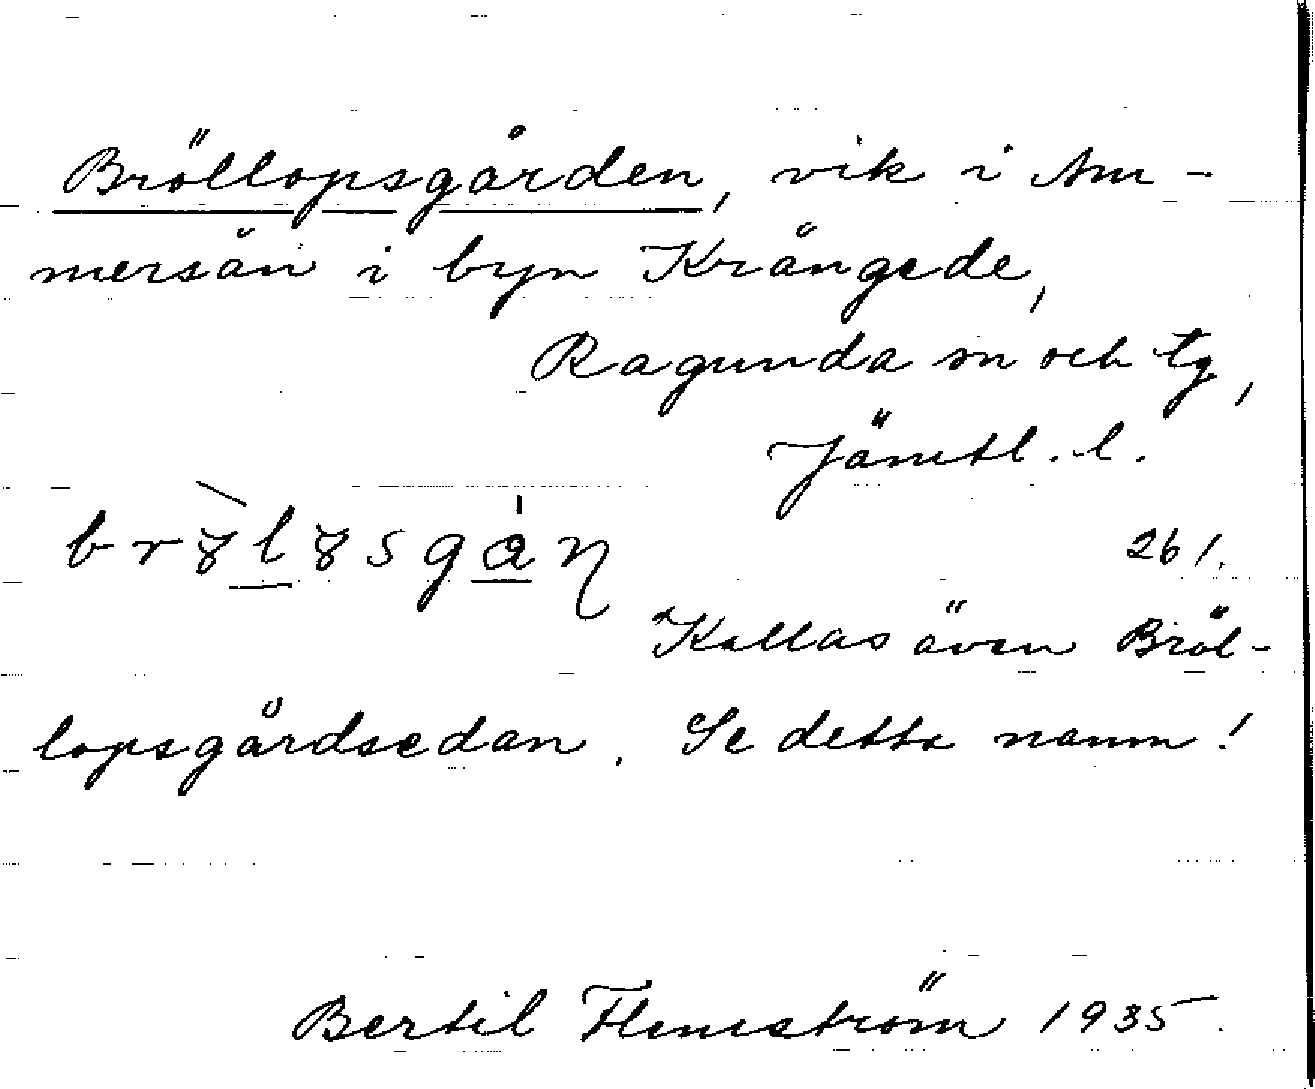 Bröllopsgården, vik i Am-
mersån i byn Krångede,
Ragunda sn och tg,
Jämtl. l.
261.
Kallas även Bröl-
lopsgårdsedan. Se detta namn!
Bertil Flemström 1935.